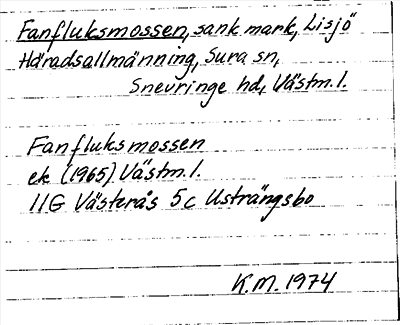 Fanfluksmossen, sank mark, Lisjö
Häradsallmänning, Sura sn,
Snevringe hd, Västm.l.
Fanfluksmossen
ek (1965) Västm.l.
11G Västerås 5c Usträngsbo
K.M. 1974